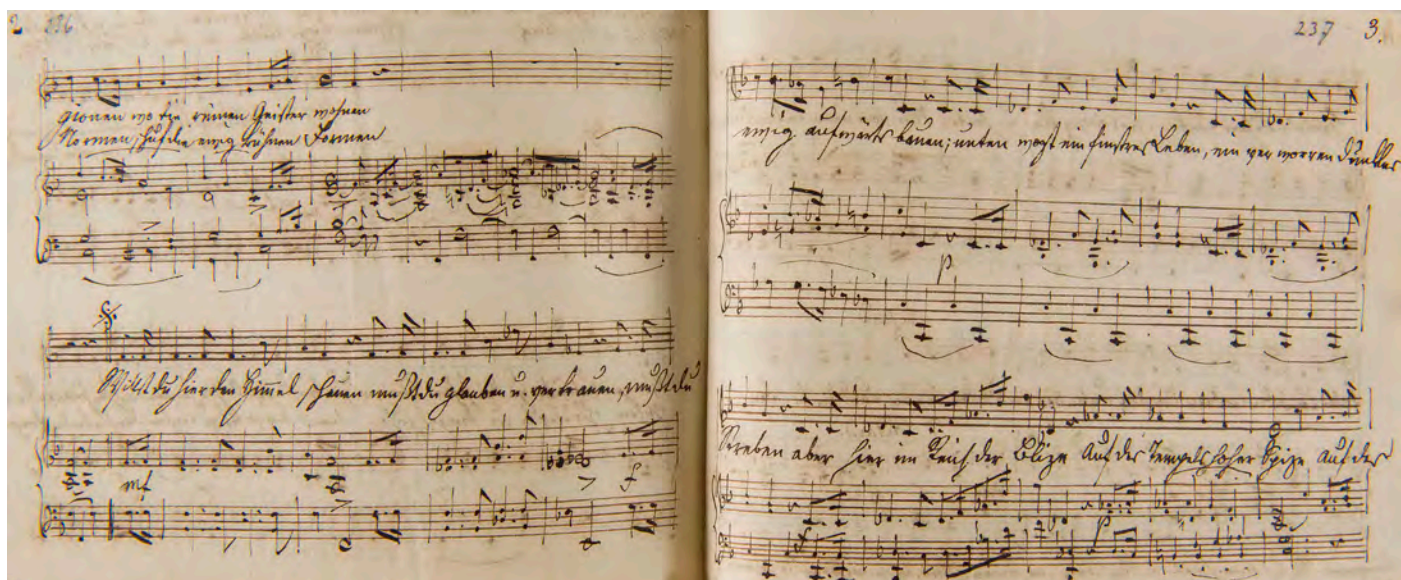 2 236
gionen wo die reinen Geister wohnen
Normen, Huf die ewig blühnen Formen
Willst du hier den Himmel schauen mußt du glauben u. vertrauen, mußt du
mf
f
237 3.
ewig aufwärts bauen; unten wogt ein finstres Leben, ein verworren dunkles
p
Streben aber hier im Reich der Blize Auf des Tempels hoher Spize auf des
f p